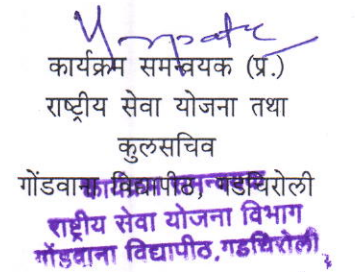 कार्यक्रम समन्वयक (प्र.)
राष्ट्रीय सेवा योजना तथा
कुलसचिव
गोंडवाना विद्यापीठ, गडचिरोली
कार्यक्रम समन्वयक
राष्ट्रीय सेवा योजना विभाग
गोंडवाना विद्यापीठ, गडचिरोली